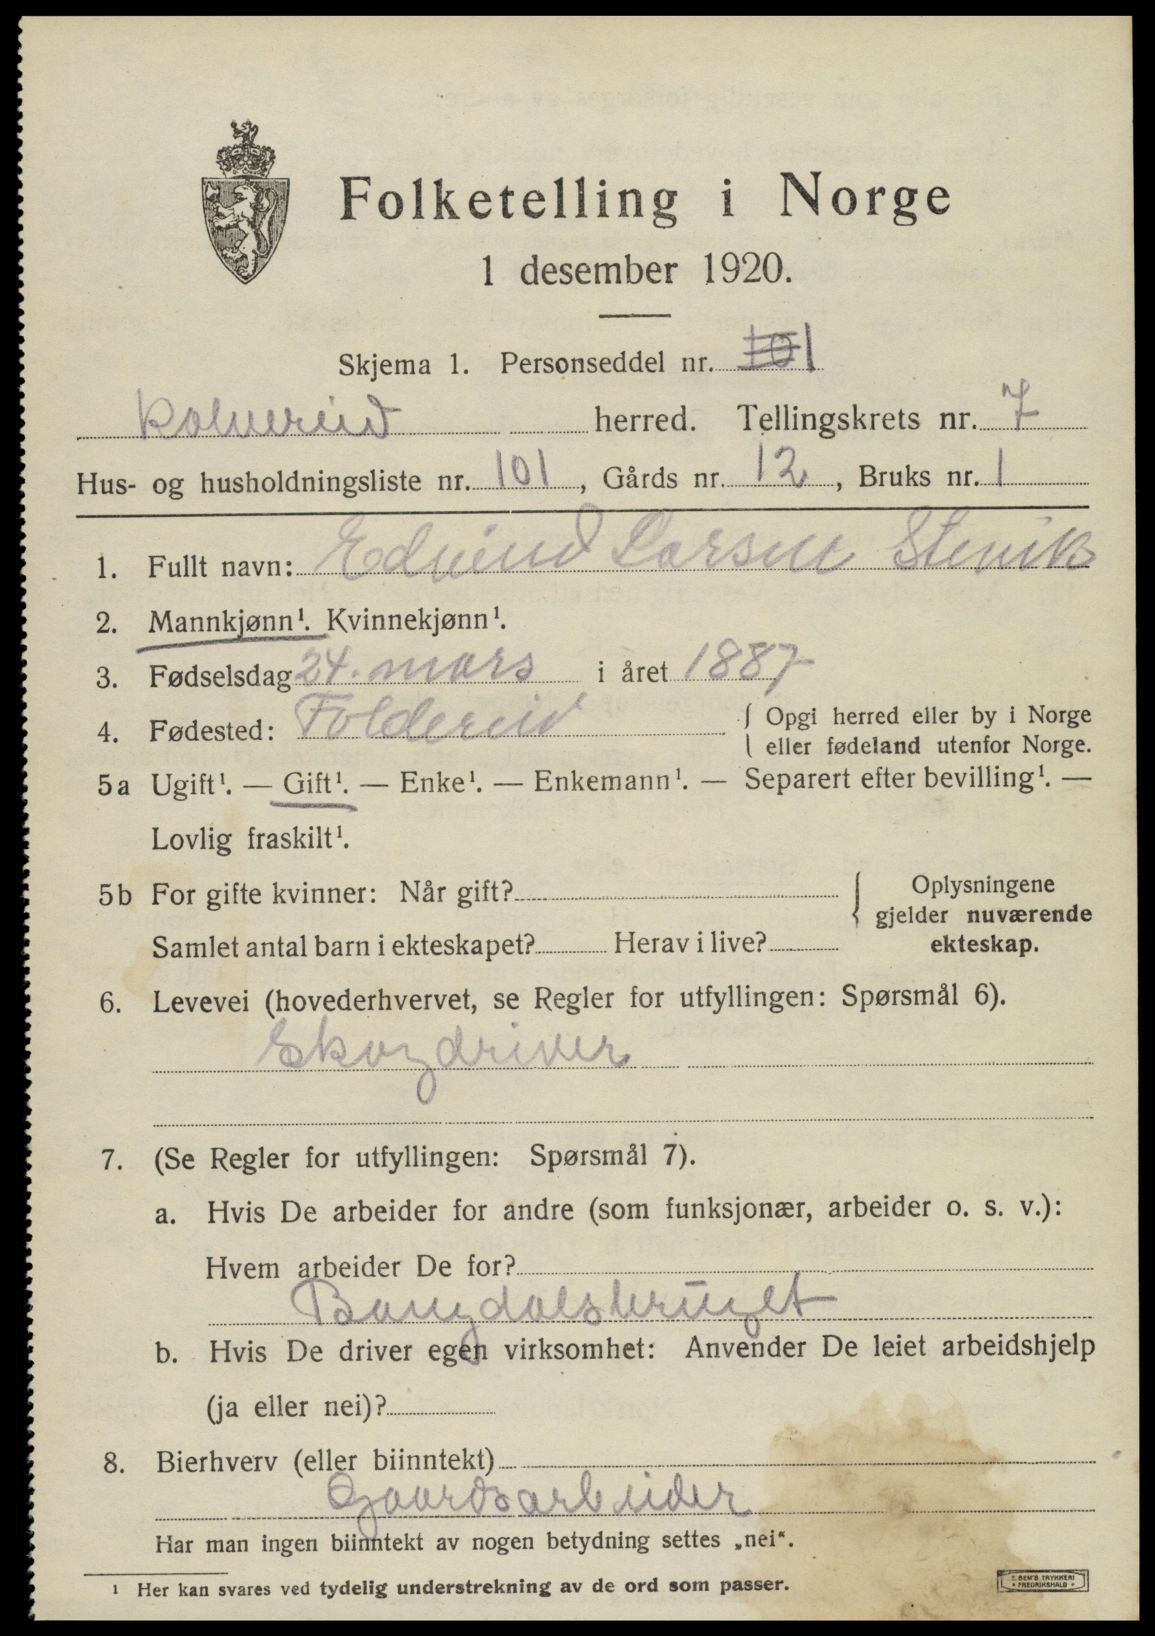 Folketelling i Norge
1 desember 1920.
Skjema 1. Personseddel nr. 101 1
Kolvereid herred. Tellingskrets nr. 7
Hus- og husholdningsliste nr. 101, Gårds nr. 12, Bruks nr. 1
1. Fullt navn: Edvind Larsen Stenvik
2. Mannkjønn¹. Kvinnekjønn¹.
3. Fødselsdag 24. mars i året 1887
4. Fødested: Foldereid { Opgi herred eller by i Norge
eller fødeland utenfor Norge.
5a Ugift¹. — Gift¹. — Enke¹. — Enkemann¹. — Separert efter bevilling¹. —
Lovlig fraskilt¹.
5b For gifte kvinner: Når gift? { Oplysningene
gjelder nuværende
Samlet antal barn i ekteskapet? Herav i live? ekteskap.
6. Levevei (hovederhvervet, se Regler for utfyllingen: Spørsmål 6).
Skogdriver
7. (Se Regler for utfyllingen: Spørsmål 7).
a. Hvis De arbeider for andre (som funksjonær, arbeider o. s. v.):
Hvem arbeider De for?
Bangdalsbruget
b. Hvis De driver egen virksomhet: Anvender De leiet arbeidshjelp
(ja eller nei)?
8. Bierhverv (eller biinntekt)
Gaardsarbeider
Har man ingen biinntekt av nogen betydning settes „nei“.
¹ Her kan svares ved tydelig understrekning av de ord som passer.
E. SEM'S TRYKKERI
FREDRIKSHALD